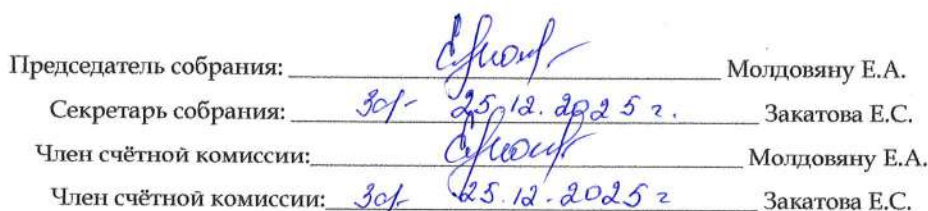 Председатель собрания: Молдовяну Е.А.
Секретарь собрания: 25.12.2025 г. Закатова Е.С.
Член счётной комиссии: Молдовяну Е.А.
Член счётной комиссии: 25.12.2025 г Закатова Е.С.